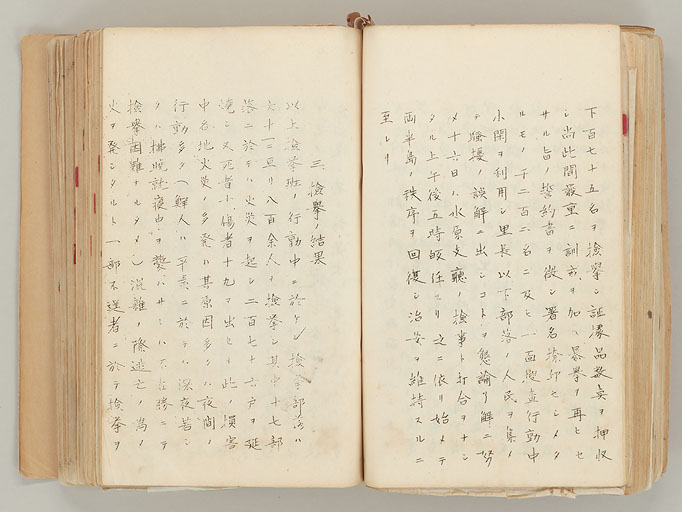 下百七十五名ヲ検挙シ証憑品数点ヲ押収
シ尚此間厳重ニ訓戒ヲ加ヘ暴挙ヲ再ヒセ
サル旨ノ誓約書ヲ徴シ署名捺印セシメタ
ルモノ千二百二名ニ及ヒ一面巡査行動中
小閑ヲ利用シ里長以下部落ノ人民ヲ集メ
テ騒擾ノ誤解ニ出シコトヲ懇諭シ解ニ努
メ十六日ハ水原支廳ノ検事ト打合ヲナシ
タル上午後五時帰任セリ之ニ依リ始メテ
両半島ノ秩序ヲ回復シ治安ヲ維持スルニ
至レリ
三、検挙ノ結果
以上検挙班ノ行動中ニ於ケル検挙部落ハ
六十三ニ亘リ八百余人ヲ検挙シ其中十七部
落ニ於テハ火災ヲ起シ二百七十六戸ヲ延
焼シ又死者小傷者十九ヲ出セリ此ノ損害
中各地火災ノ多発ハ其原因多クハ夜間ノ
行動多ク(鮮人ハ平素ニ於テハ深夜若シ
クハ拂暁就寝中ヲ襲ハサレハ不在勝ニテ
検挙困難ナルタメ)混雑ノ際逃亡ノ為メ
火ヲ発シタルト一部不逞者ニ於テ検挙ヲ